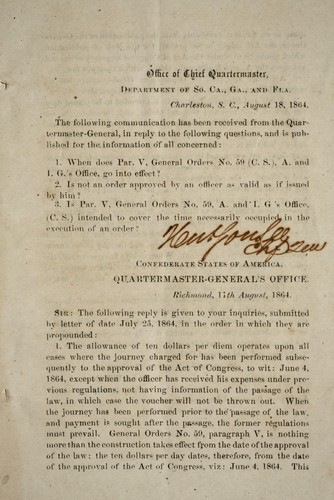 Office of Chief Quartermaster,
Department of So. Ca., Ga., and Fla.
Charleston, S. C., August 18, 1864.
The following communication has been received from the Quar-
termaster-General, in reply to the following questions, and is pub-
lished for the information of all concerned:
1. When does Par. V, General Orders No. 59 (C. S.), A. and
I. G.'s Office, go into effect?
2. Is not an order approved by an officer as valid as if issued
by him?
3. Is Par. V, General Orders No. 59, A. and I. G 's Office,
(C. S.) intended to cover the time necessarily occupied in the
execution of an order?
Confederate States of America,
QUARTERMASTER-GENERAL'S OFFICE.
Richmond, 11th August, 1864.
Sir: The following reply is given to your inquiries, submitted
by letter of date July 25, 1864, in the order in which they are
propounded:
1. The allowance of ten dollars per diem operates upon all
cases where the journey charged for has been performed subse-
quently to the approval of the Act of Congress, to wit: June 4,
1864, except when the officer has received his expenses under pre-
vious regulations, not having information of the passage of the
law, in which case the voucher will not be thrown out. When
the journey has been performed prior to the passage of the law,
and payment is sought after the passage, the former regulations
must prevail. General Orders No. 59, paragraph V, is nothing
more than the construction takes effect from the date of the approval
of the law: the ten dollars per day dates, therefore, from the
date of the approval of the Act of Congress, viz: June 4, 1864. This